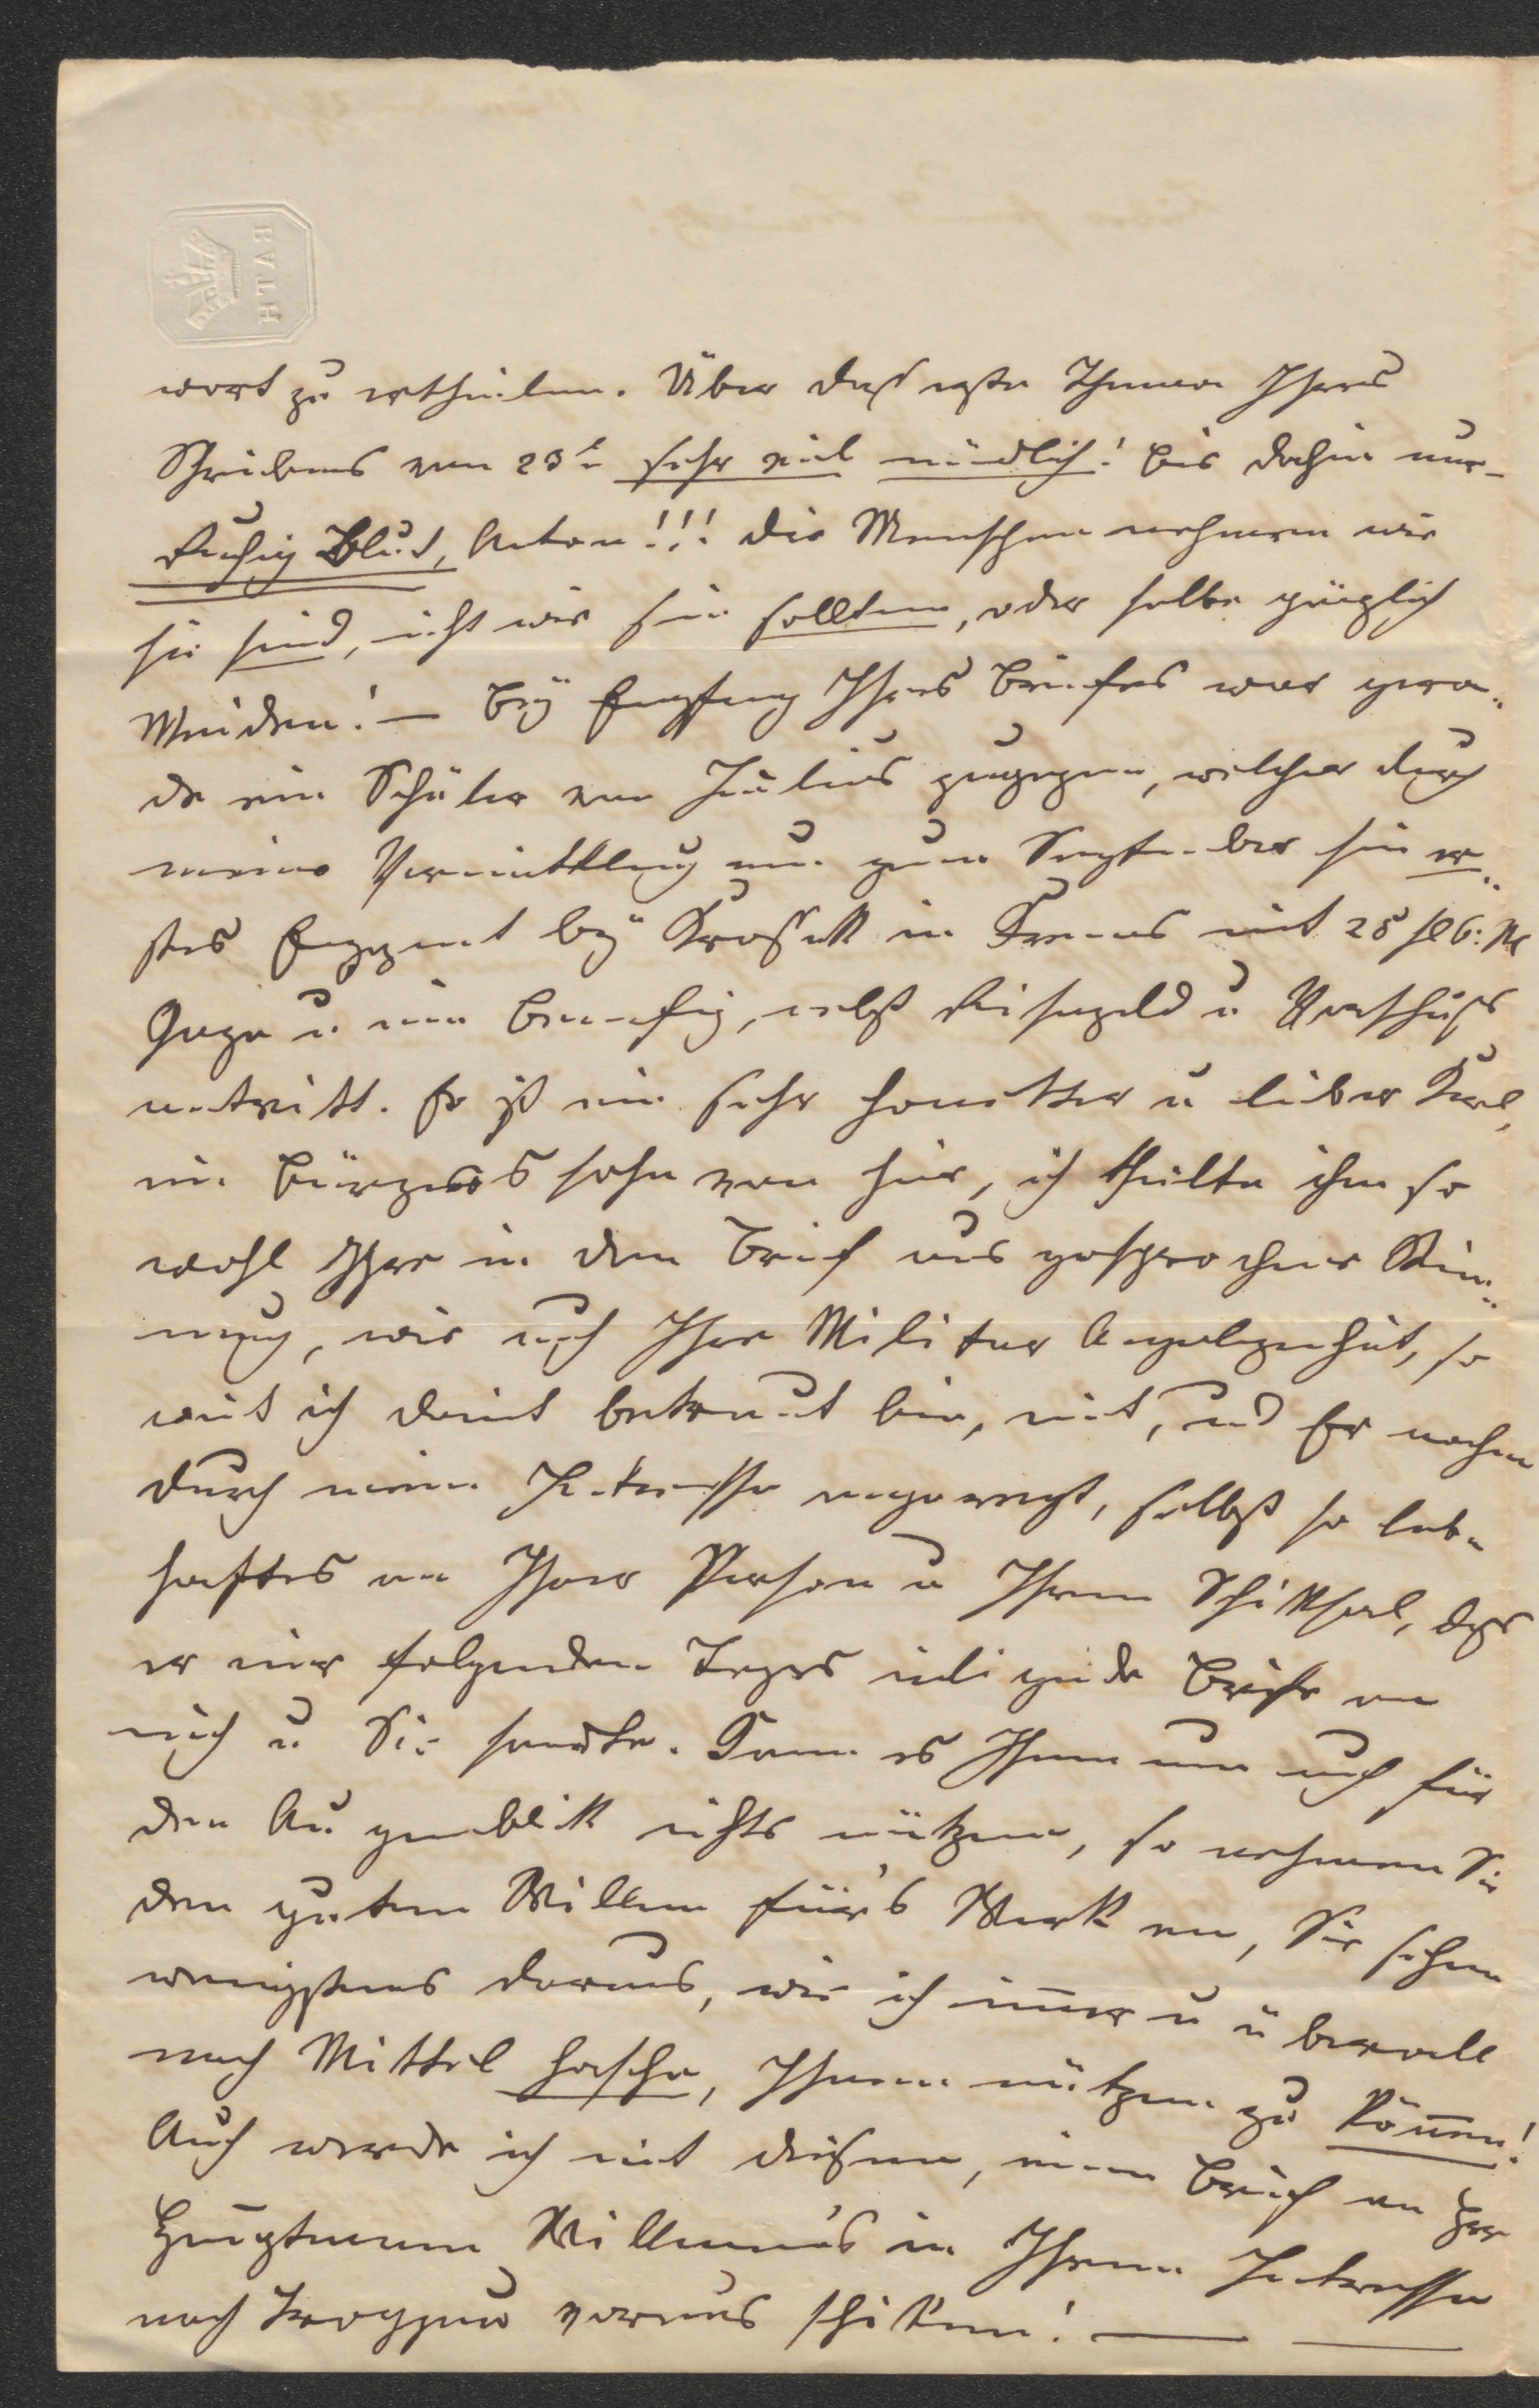 BATH
wort zu ertheilen. Über das erste Thema Ihres
Schreibens vom 23t. sehr viel mündlich! bis dahin nur
Ruhig Blut, Anton!!! die Menschen nehmen wie
sie sind, nicht wie sie sollten, oder selbe gänzlich
Meiden! — Bey Empfang Ihres Briefes war gera¬
de ein Schüler von Julius zugegen, welcher durch
meine Vermittlung nun zum September sein er¬
stes Engagement bey in Krems mit 25 fl
Gage u. ein Benefiz, nebst Reisegeld u Vorschuß
antritt. Er ist ein sehr honetter u lieber Kerl,
ein Bürgerssohn von hier, ich theilte ihm so
wohl Ihre in dem Brief ausgesprochene Stim¬
mung, wie auch Ihre Militär Angelegenheit, so
weit ich damit betraut bin, mit, und Er nahm
durch mein Interesse angeregt, selbst so leb¬
haftes an Ihrer Person u Ihrem Schicksal, daß
er mir folgenden Tages inliegende Briefe an
mich u. Sie sandte. Kann es Ihnen nun auch für
den Augenblick nichts nützen, so nehmen Sie
den guten Willen für's Werk an, Sie sehen
wenigstens daraus, wie ich immer u überall
nach Mittel hasche, Ihnen nützen zu können!
Auch werde ich mit diesem, einen Brief an Herr
Hauptmann in Ihrem Interesse
nach Troppau voraus schicken! —